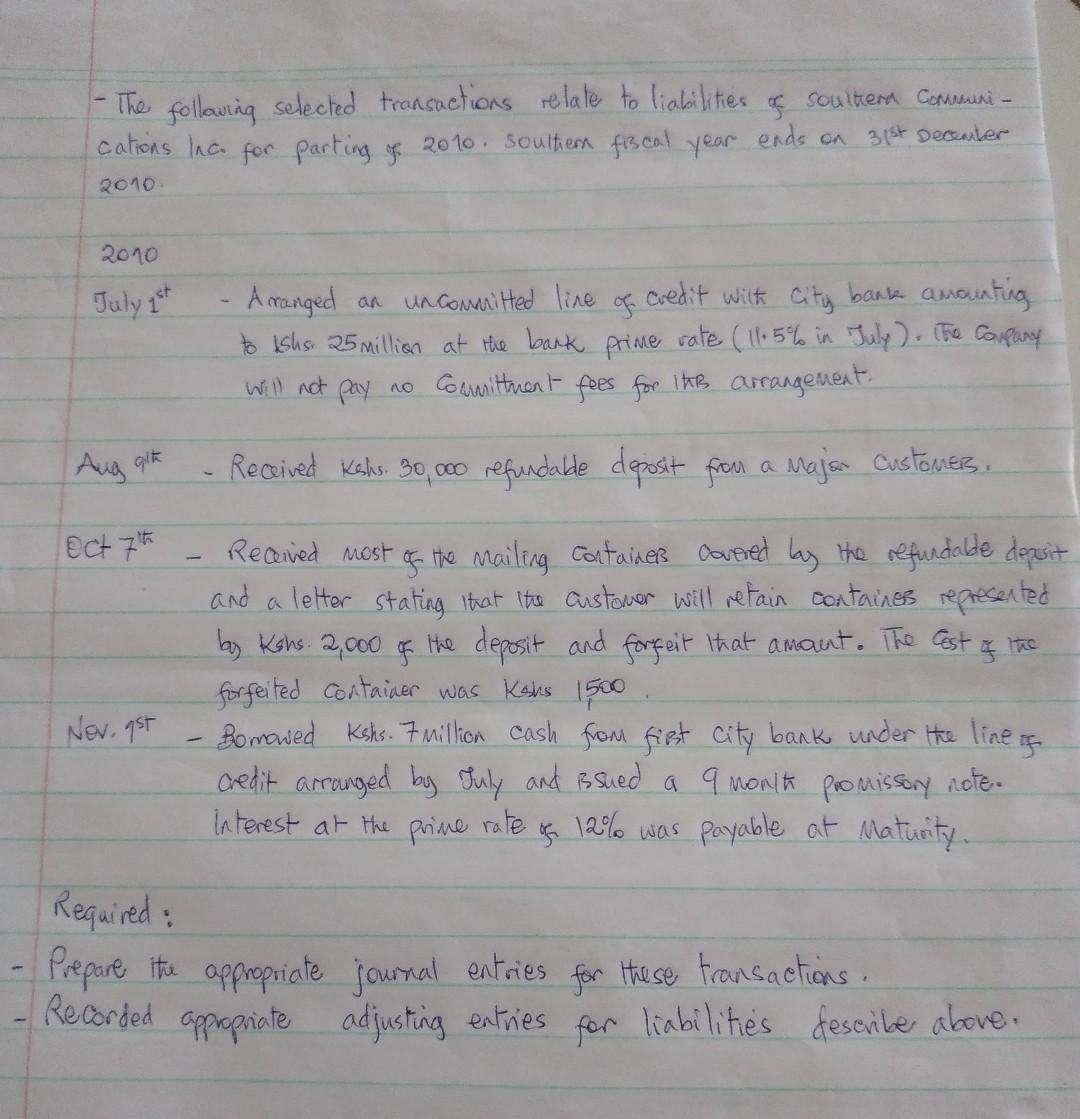 - The following selected transactions relate to liabilities of soulthern Communi -
cations Inc. for parting of 2010. soulthern fiscal year ends on 31st December
2010.
2010
July 1st - Arranged an uncommitted line of credit with City bank amounting
to Kshs. 25 million at the bank prime rate (11.5% in July). The Company
will not pay no Committment fees for this arrangement.
Aug 9th - Received Kshs. 30,000 refundable deposit from a Major Customers.
Oct 7th - Received most of the Mailing Containers covered by the refundable deposit
and a letter stating that the Customer will retain containers represented
by Kshs. 2,000 of the deposit and forfeit that amount. The Cost of the
forfeited Container was Kshs 1,500.
Nov. 1st - Borrowed Kshs. 7 million cash from first City bank under the line of
credit arranged by July and issued a 9 month promissory note.
Interest at the prime rate of 12% was payable at Maturity.
Required :
- Prepare the appropriate journal entries for these transactions.
- Recorded appropriate adjusting entries for liabilities describe above.